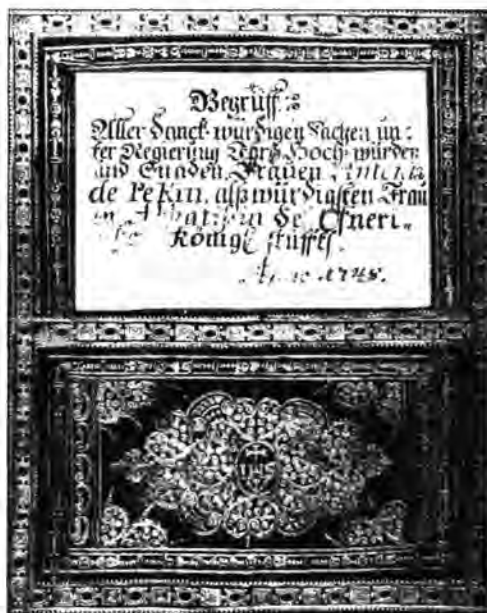 Begrüff
Aller denck-würdigen Sachen un-
ter Regierung Ihro Hoch-würden
und Gnaden, Frauen
de Pekin, alß würdigsten Frau
in de Osneri-
Königl stüffts
Anno 1748.
IHS